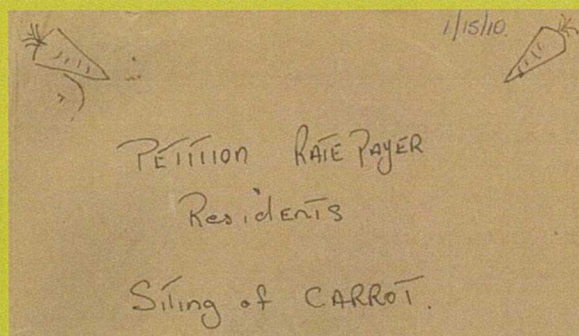 1/15/10.
PETITION RATE PAYER
Residents
Siting of CARROT.